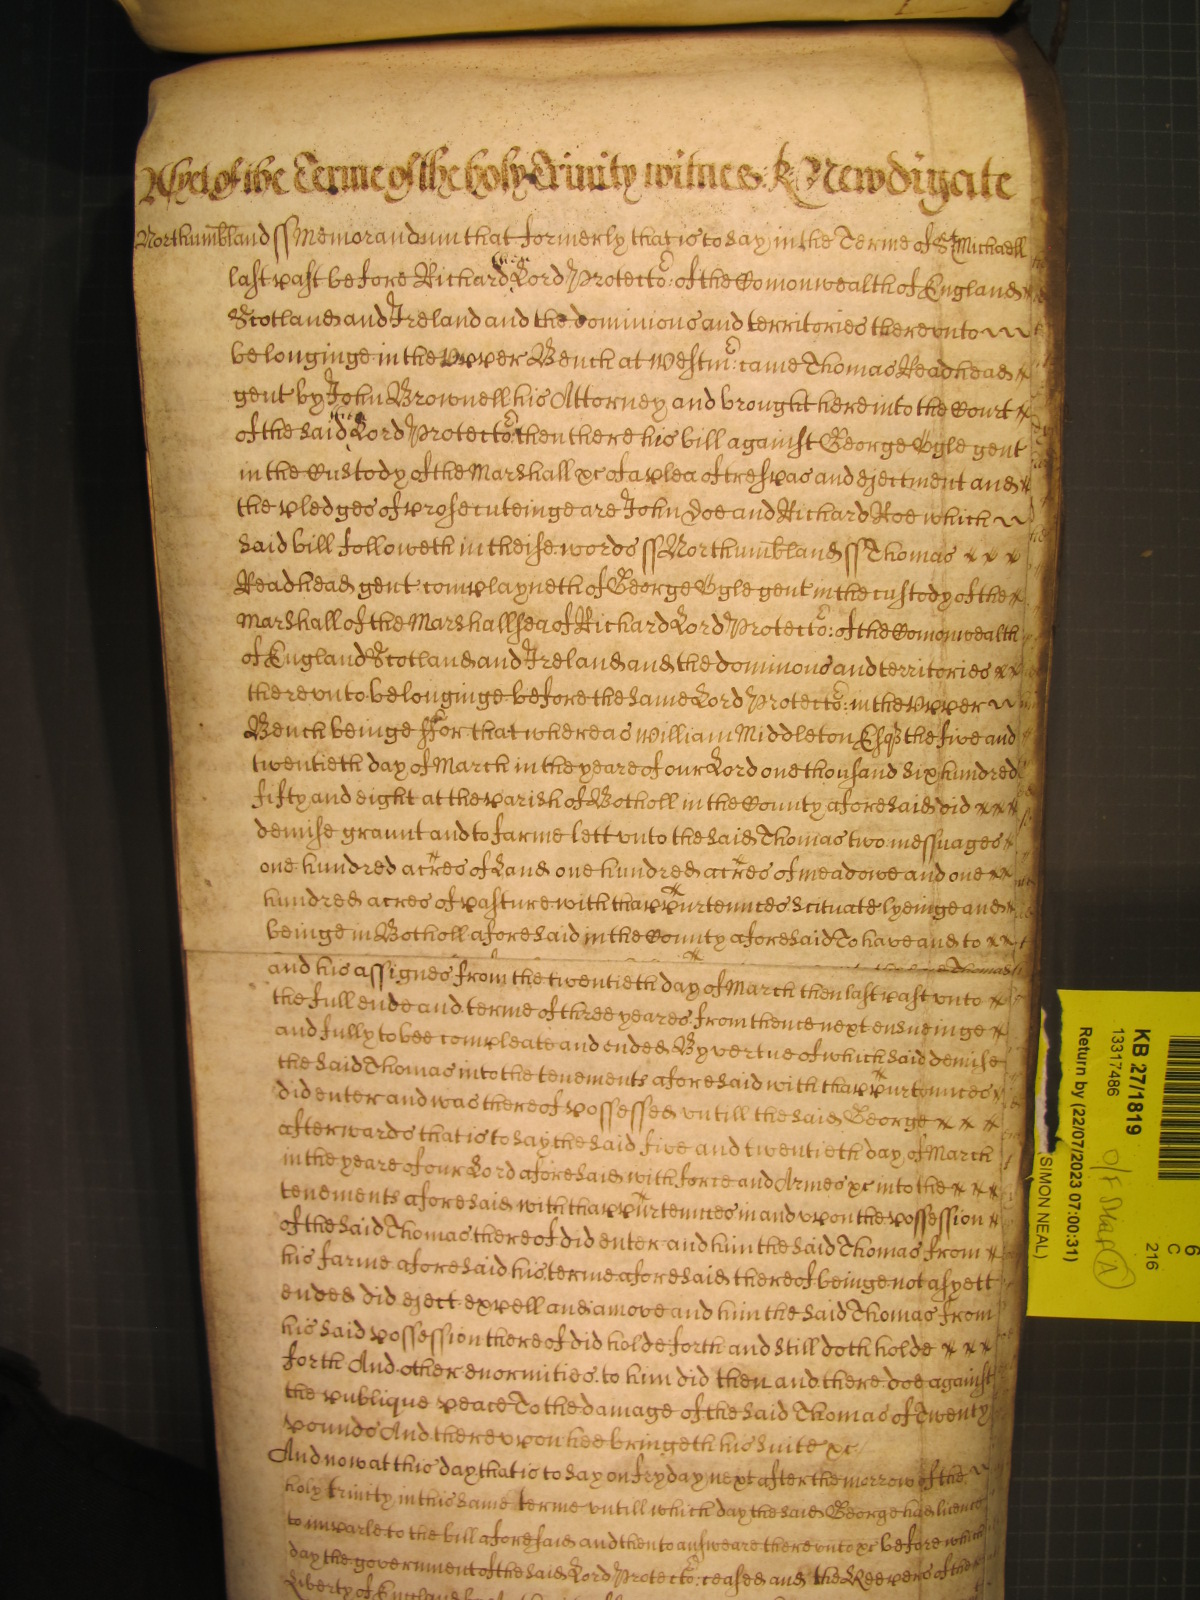 Yet of the Terme of the holy Trinity witnes R Newdigate
Northumbland ss Memorandum that formerly that is to say in the Terme of St Michaell
last past before Richard Lord Protector: of the Comonwealth of England
Scotland and Ireland and the dominions and territories therevnto
belonginge in the Vpper Bench at Westm: came Thomas Readhead
gent by John Brownell his Attorney and brought here into the Court
of the said Lord Protector: then there his bill against George Ogle gent
in the Custody of the Marshall &c of a plea of trespas and ejectment and
the pledges of prosecuteinge are John Doe and Richard Roe which
said bill followeth in theise words ss Northumbland ss Thomas
Readhead gent complayneth of George Ogle gent in the custody of the
Marshall of the Marshallsea of Richard Lord Protector: of the Comonwealth
of England Scotland and Ireland and the dominions and territories
therevnto belonginge before the same Lord Protector: in the Vpper
Bench beinge ffor that whereas William Middleton Esq the five and
twentieth day of March in the yeare of our Lord one thousand six hundred
fifty and eight at the parish of Botholl in the County aforesaid did
demise graunt and to farme lett vnto the said Thomas two messuages
one hundred acres of Land one hundred acres of meadowe and one
hundred acres of pasture with thappurtennces scituate lyeinge and
beinge in Botholl aforesaid in the County aforesaid To have and to
Thomas
and his assignes from the twentieth day of March then last past vnto
the full ende and terme of three yeares from thence next ensueinge
and fully to bee compleate and ended By vertue of which said demise
the said Thomas into the tenements aforesaid with thappurtennces
did enter and was thereof possessed vntill the said George
afterwards that is to say the said five and twentieth day of March
in the yeare of our Lord aforesaid with force and Armes &c into the
tenements aforesaid with thappurtennces in and vpon the possession
of the said Thomas thereof did enter and him the said Thomas from
his farme aforesaid his terme aforesaid thereof beinge not as yett
ended did eject expell and amove and him the said Thomas from
his said possession thereof did holde forth and still doth holde
forth And other enormities to him did then and there doe against
the publique peace To the damage of the said Thomas of Twenty
pounds And therevpon hee bringeth his suite &c
And now at this day that is to say on fryday next after the morrow of the
holy trinity in this same terme vntill which day the said George had licence
to imparle to the bill aforesaid and then to answeare therevnto &c before which
day the government of the said Lord Protector: ceased and the Keepers of the
Liberty of England
KB 27/1819
13317486
Return by (22/07/2023 07:00:31)
SIMON NEAL)
6
C
216
A